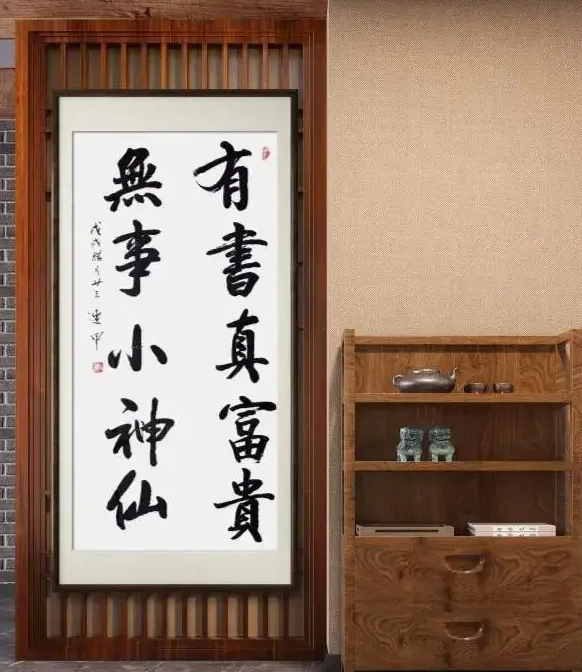 有書真富貴
無事小神仙
戊戌腊月廿三 甲